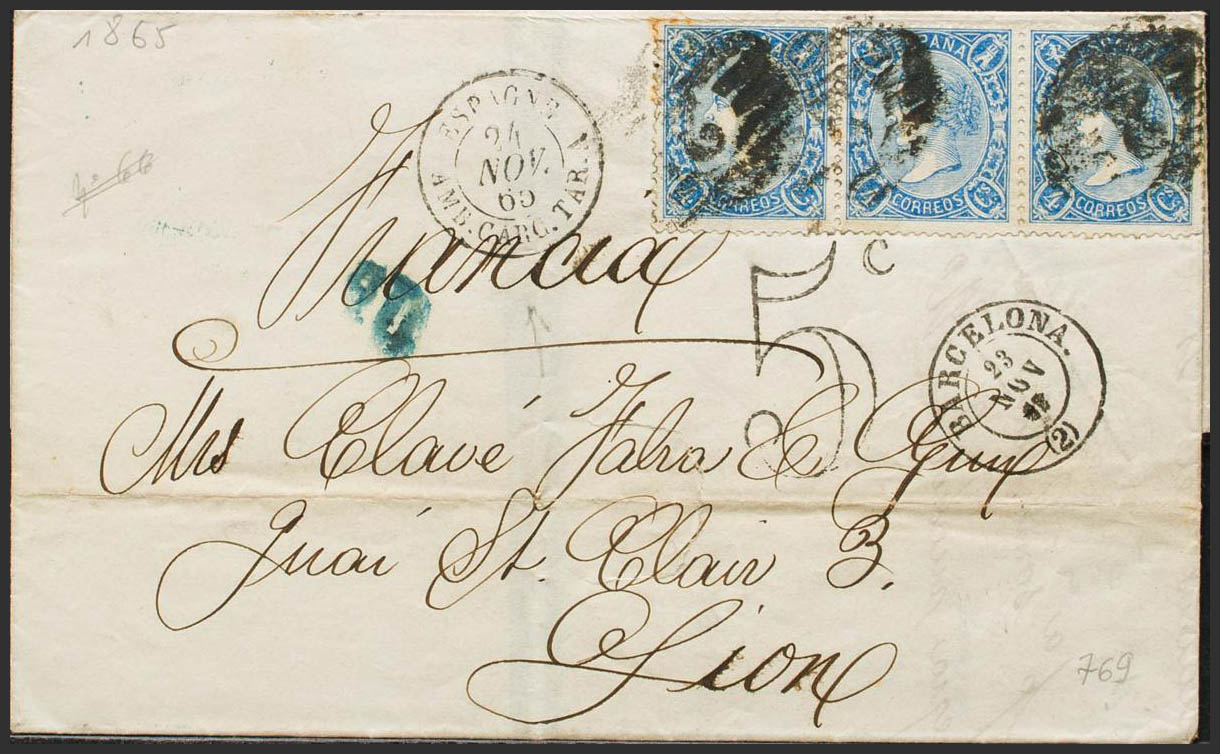 1865
ESPAGNE
24
NOV.
65
AMB. CARC. TAR. A
ESPAÑA
CORREOS
4 CORREOS Cs
Francia
5 c
BARCELONA.
23
NOV
(2)
Mrs Clavé Fabra &
Quai St. Clair 3.
Lion
769